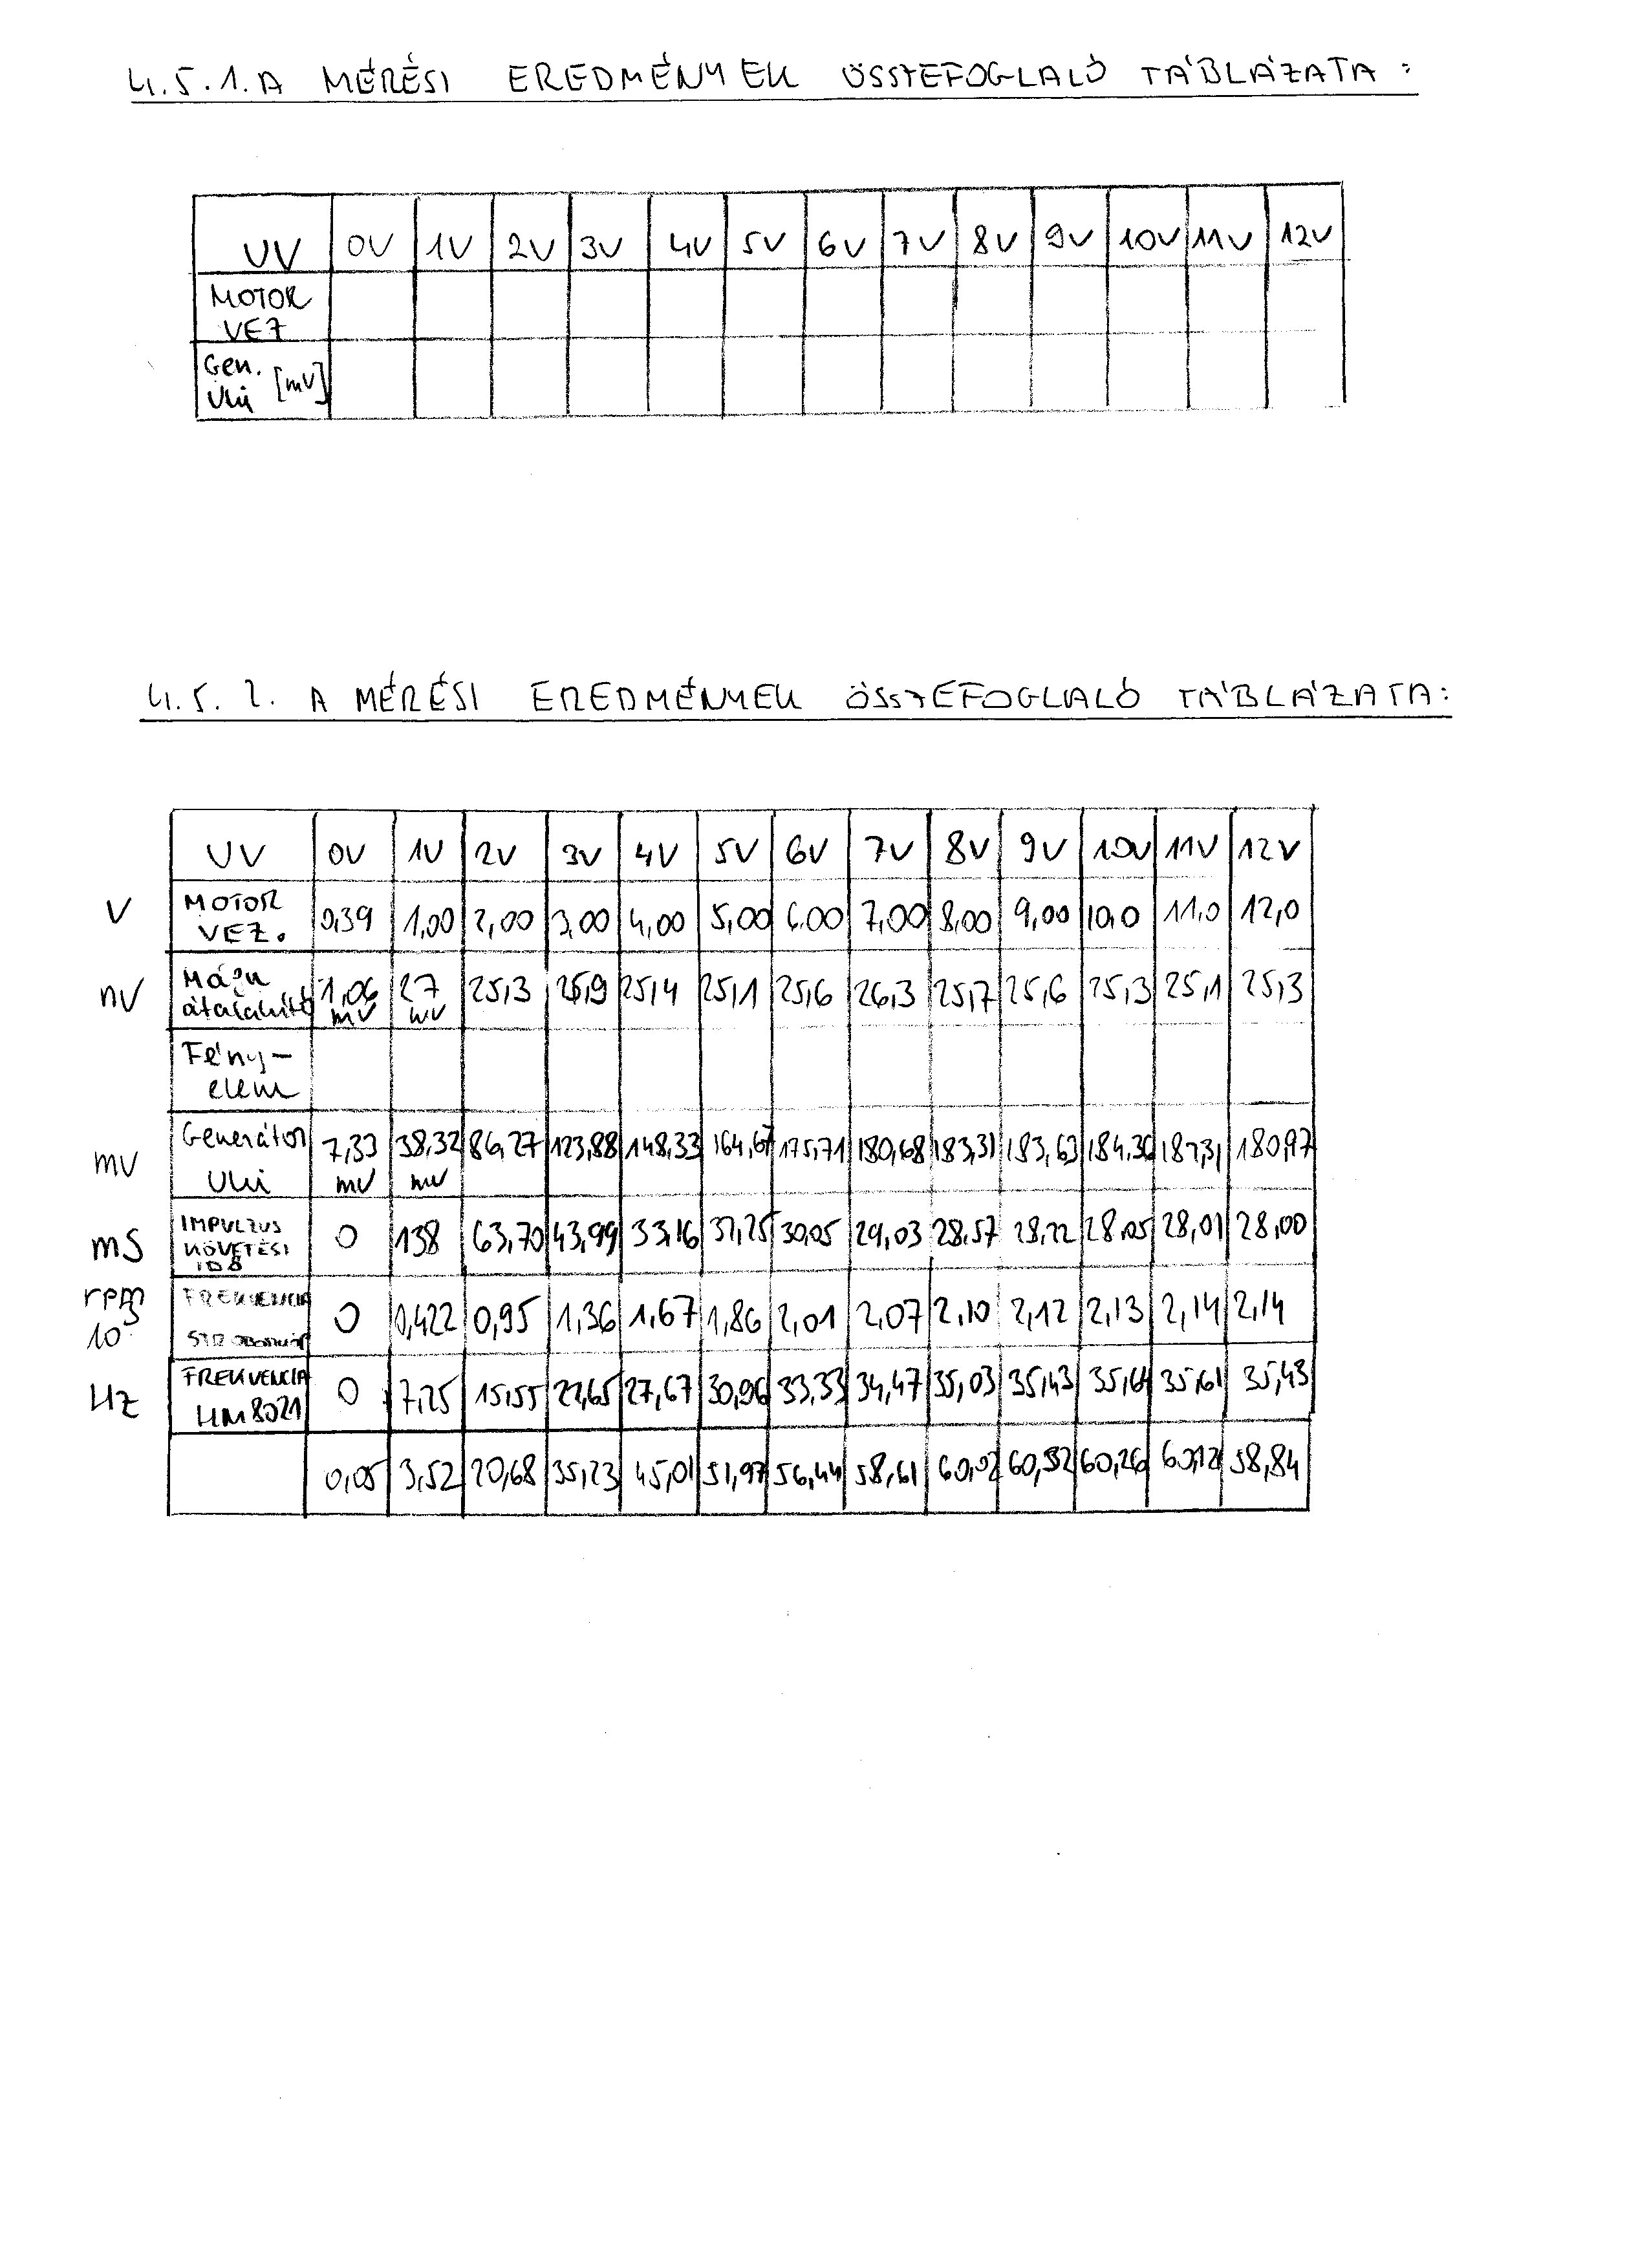 4.5.1. A MÉRÉSI EREDMÉNYEK ÖSSZEFOGLALÓ TÁBLÁZATA:
UV 0V 1V 2V 3V 4V 5V 6V 7V 8V 9V 10V 11V 12V
MOTOR
VEZ
Gen. [mV]
Uki
4.5.2. A MÉRÉSI EREDMÉNYEK ÖSSZEFOGLALÓ TÁBLÁZATA:
UV 0V 1V 2V 3V 4V 5V 6V 7V 8V 9V 10V 11V 12V
V MOTOR 0,39 1,00 2,00 3,00 4,00 5,00 6,00 7,00 8,00 9,00 10,0 11,0 12,0
VEZ.
mV Mágn 1,06 27 25,3 25,9 25,4 25,1 25,6 26,3 25,7 25,6 25,3 25,1 25,3
átalakító mV mV
Fény-
elem
mV Generátor 7,33 38,32 86,27 123,88 148,33 164,67 175,71 180,68 183,31 183,63 184,36 187,31 180,97
Uki mV mV
mS IMPULZUS 0 138 63,70 43,99 33,16 31,25 30,05 29,03 28,57 28,22 28,05 28,01 28,00
KÖVETÉSI
IDŐ
rpm FREKVENCIA 0 0,422 0,95 1,36 1,67 1,86 2,01 2,07 2,10 2,12 2,13 2,14 2,14
10³
Hz FREKVENCIA 0 7,25 15,55 22,65 27,67 30,96 33,33 34,47 35,03 35,43 35,64 35,61 35,43
HM8021
0,05 3,52 20,68 35,23 45,01 51,97 56,44 58,61 60,02 60,32 60,26 60,12 58,84